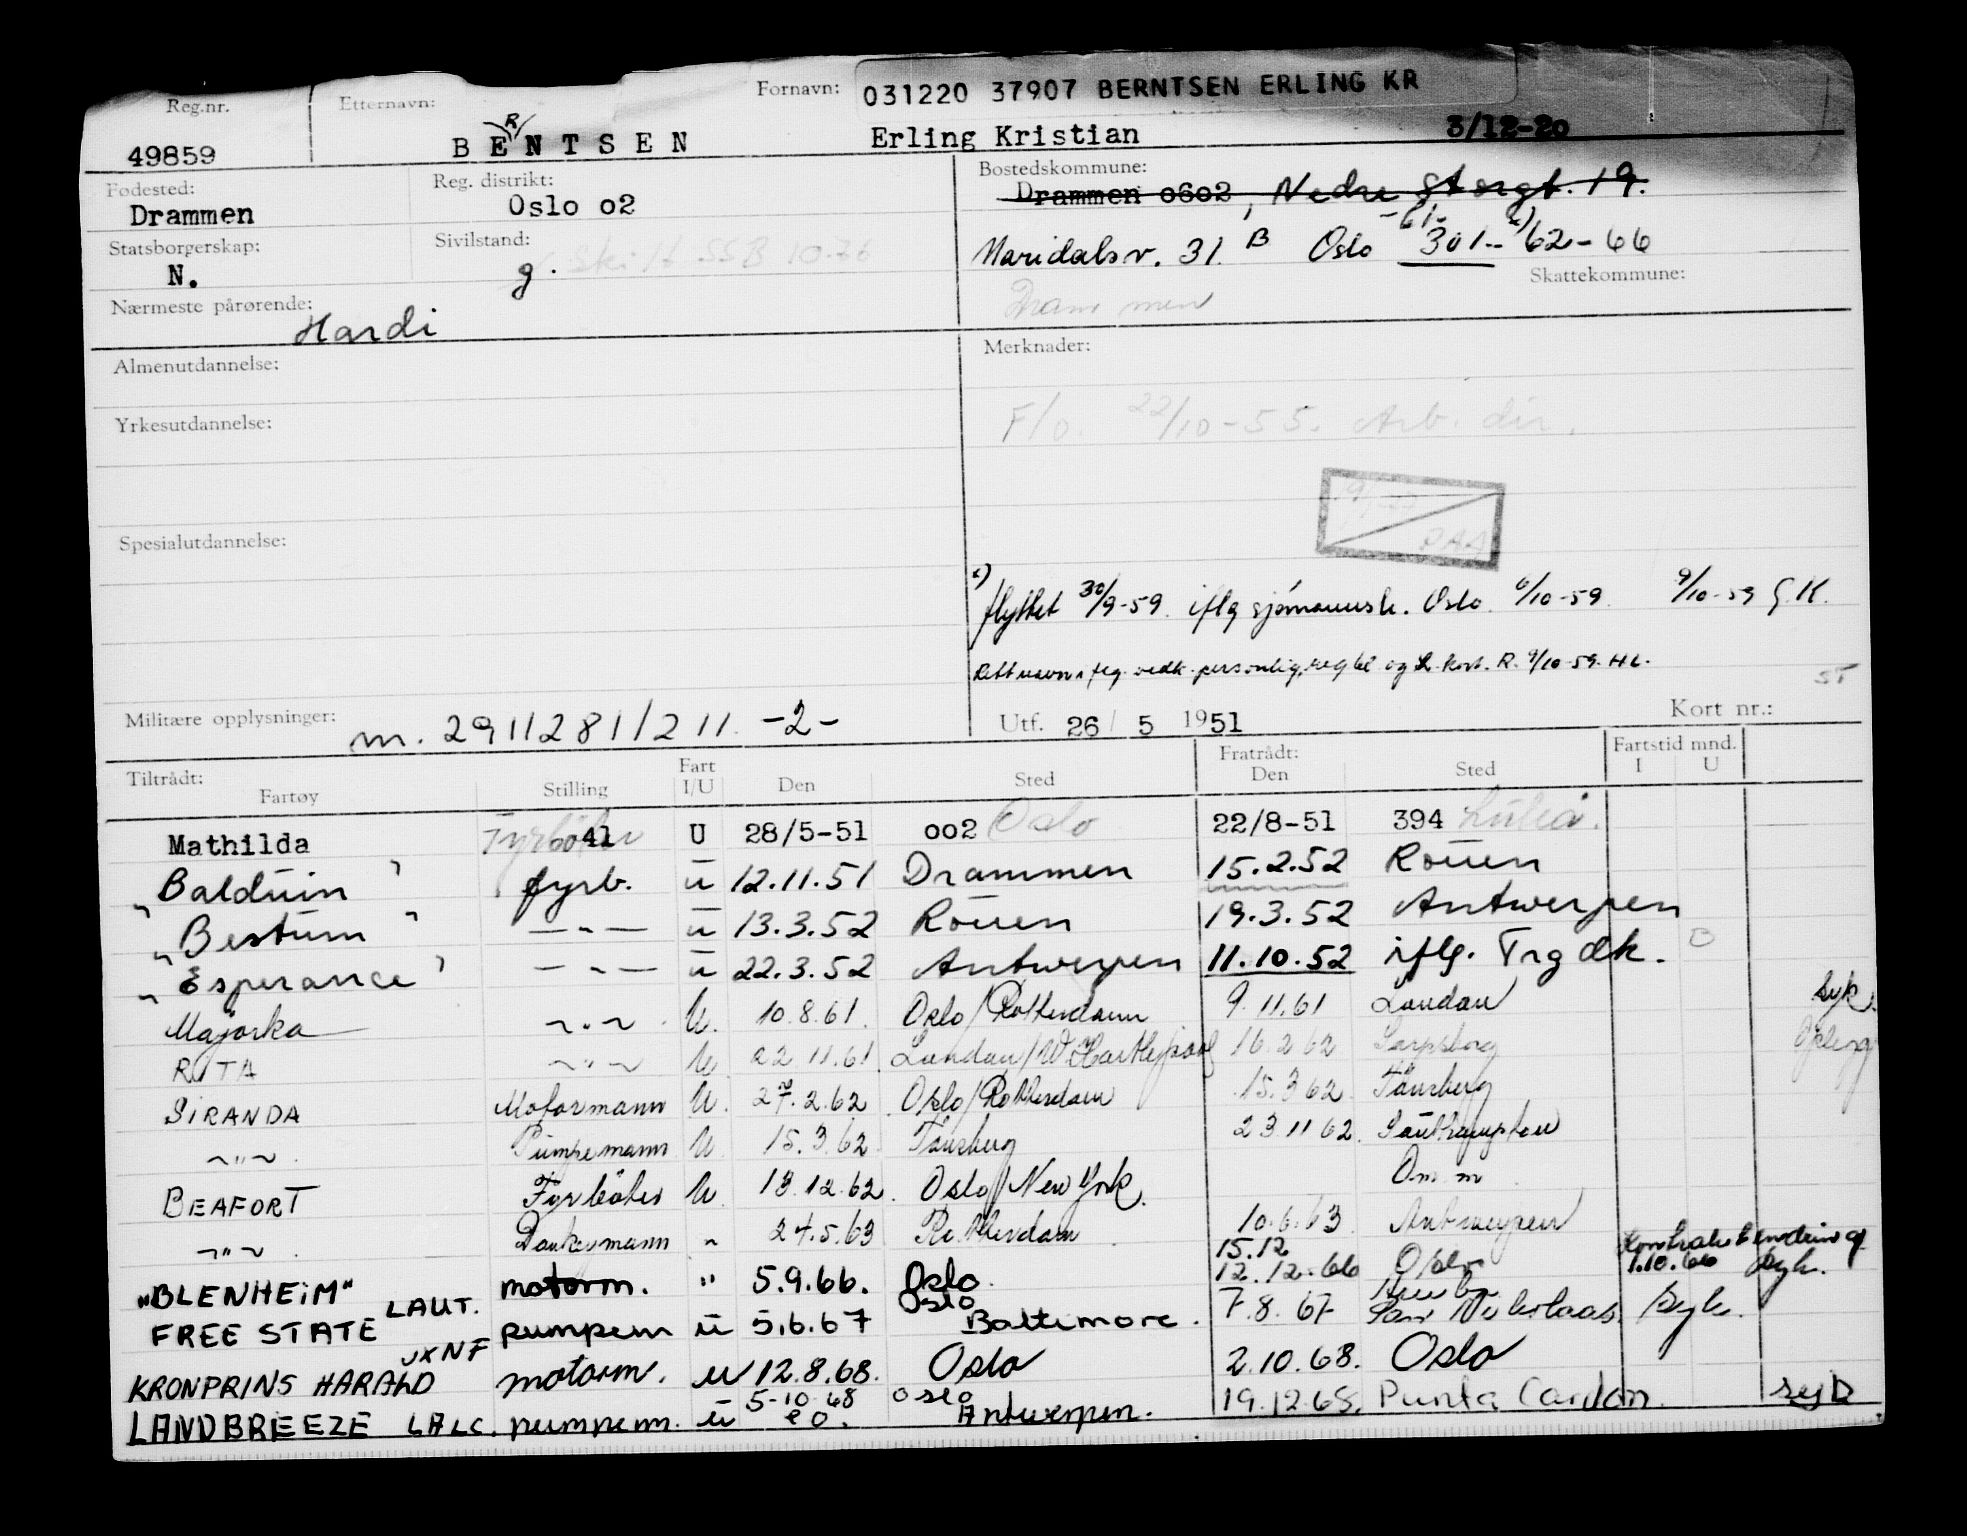 Reg.nr. Etternavn: Fornavn: 031220 37907 BERNTSEN ERLING KR
49859 BENTSEN R Erling Kristian 3/12-20
Fødested: Reg. distrikt: Bostedskommune:
Drammen Oslo 02 Drammen 0602, Nedre Storgt. 19.
Statsborgerskap: Sivilstand: -61- x)
N. g. Skilt SSB 10.76 Maridalsv. 31 B Oslo 301-- 62-66
Skattekommune:
Nærmeste pårørende: Drammen
Hardi
Almenutdannelse: Merknader:
Yrkesutdannelse: F/o. 22/10-55. Arb. dir.
PAA
Spesialutdannelse:
x) flyttet 30/9-59. iflg sjømannsk. Oslo 6/10-59. 9/10-59 G.K.
Rett navn, vedk. personlig og R. 9/10-59. HL.
Militære opplysninger: m. 2911281/211. -2- Utf. 26/ 5 1951 Kort nr.:
Tiltrådt: Fart Fratrådt: Fartstid mnd.
Fartøy Stilling I/U Den Sted Den Sted I U
Mathilda Fyrbøter 41 U 28/5-51 002 Oslo 22/8-51 394 Luleå.
"Balduin" fyrb. u 12.11.51 Drammen 15.2.52 Rouen
"Bestum" — " — u 13.3.52 Rouen 19.3.52 Antwerpen
"Esperance" — " — u 22.3.52 Antwerpen 11.10.52 iflg. Trg dk.
Majorka ~ " ~ U. 10.8.61. Oslo/Rotterdam 9.11.61 London syk.
RUTA ~ " ~ U 22 11.61. London/W.Hartlepool 16.2 62 Sarpsborg
SIRANDA Motormann U. 27.2.62 Oslo/Rotterdam 15.3 62 Tønsberg
~ " ~ Pumpemann U 15.3.62. Tønsberg 23 11 62. Southampton
BEAFORT Fyrbøter U 13.12.62. Oslo/New York. Om m
~ " ~ Donkeymann " 24.5.63 Rotterdam 10.6.63 Antwerpen
"BLENHEIM" motorm. " 5.9.66. Oslo. 15.12 12.12.66 Oslo 1.10.66 syk.
FREE STATE LAUT. pumpem u 5.6.67 Oslo Baltimore. 7.8.67 San Nicholaas Syk.
KRONPRINS HARALD JXNF motorm. u 12.8.68. Oslo 2.10.68. Oslo
LANDBREEZE LALC. pumpem. u 5-10 68 Oslo Antwerpen. 19.12.68. Punta Cardon. syk